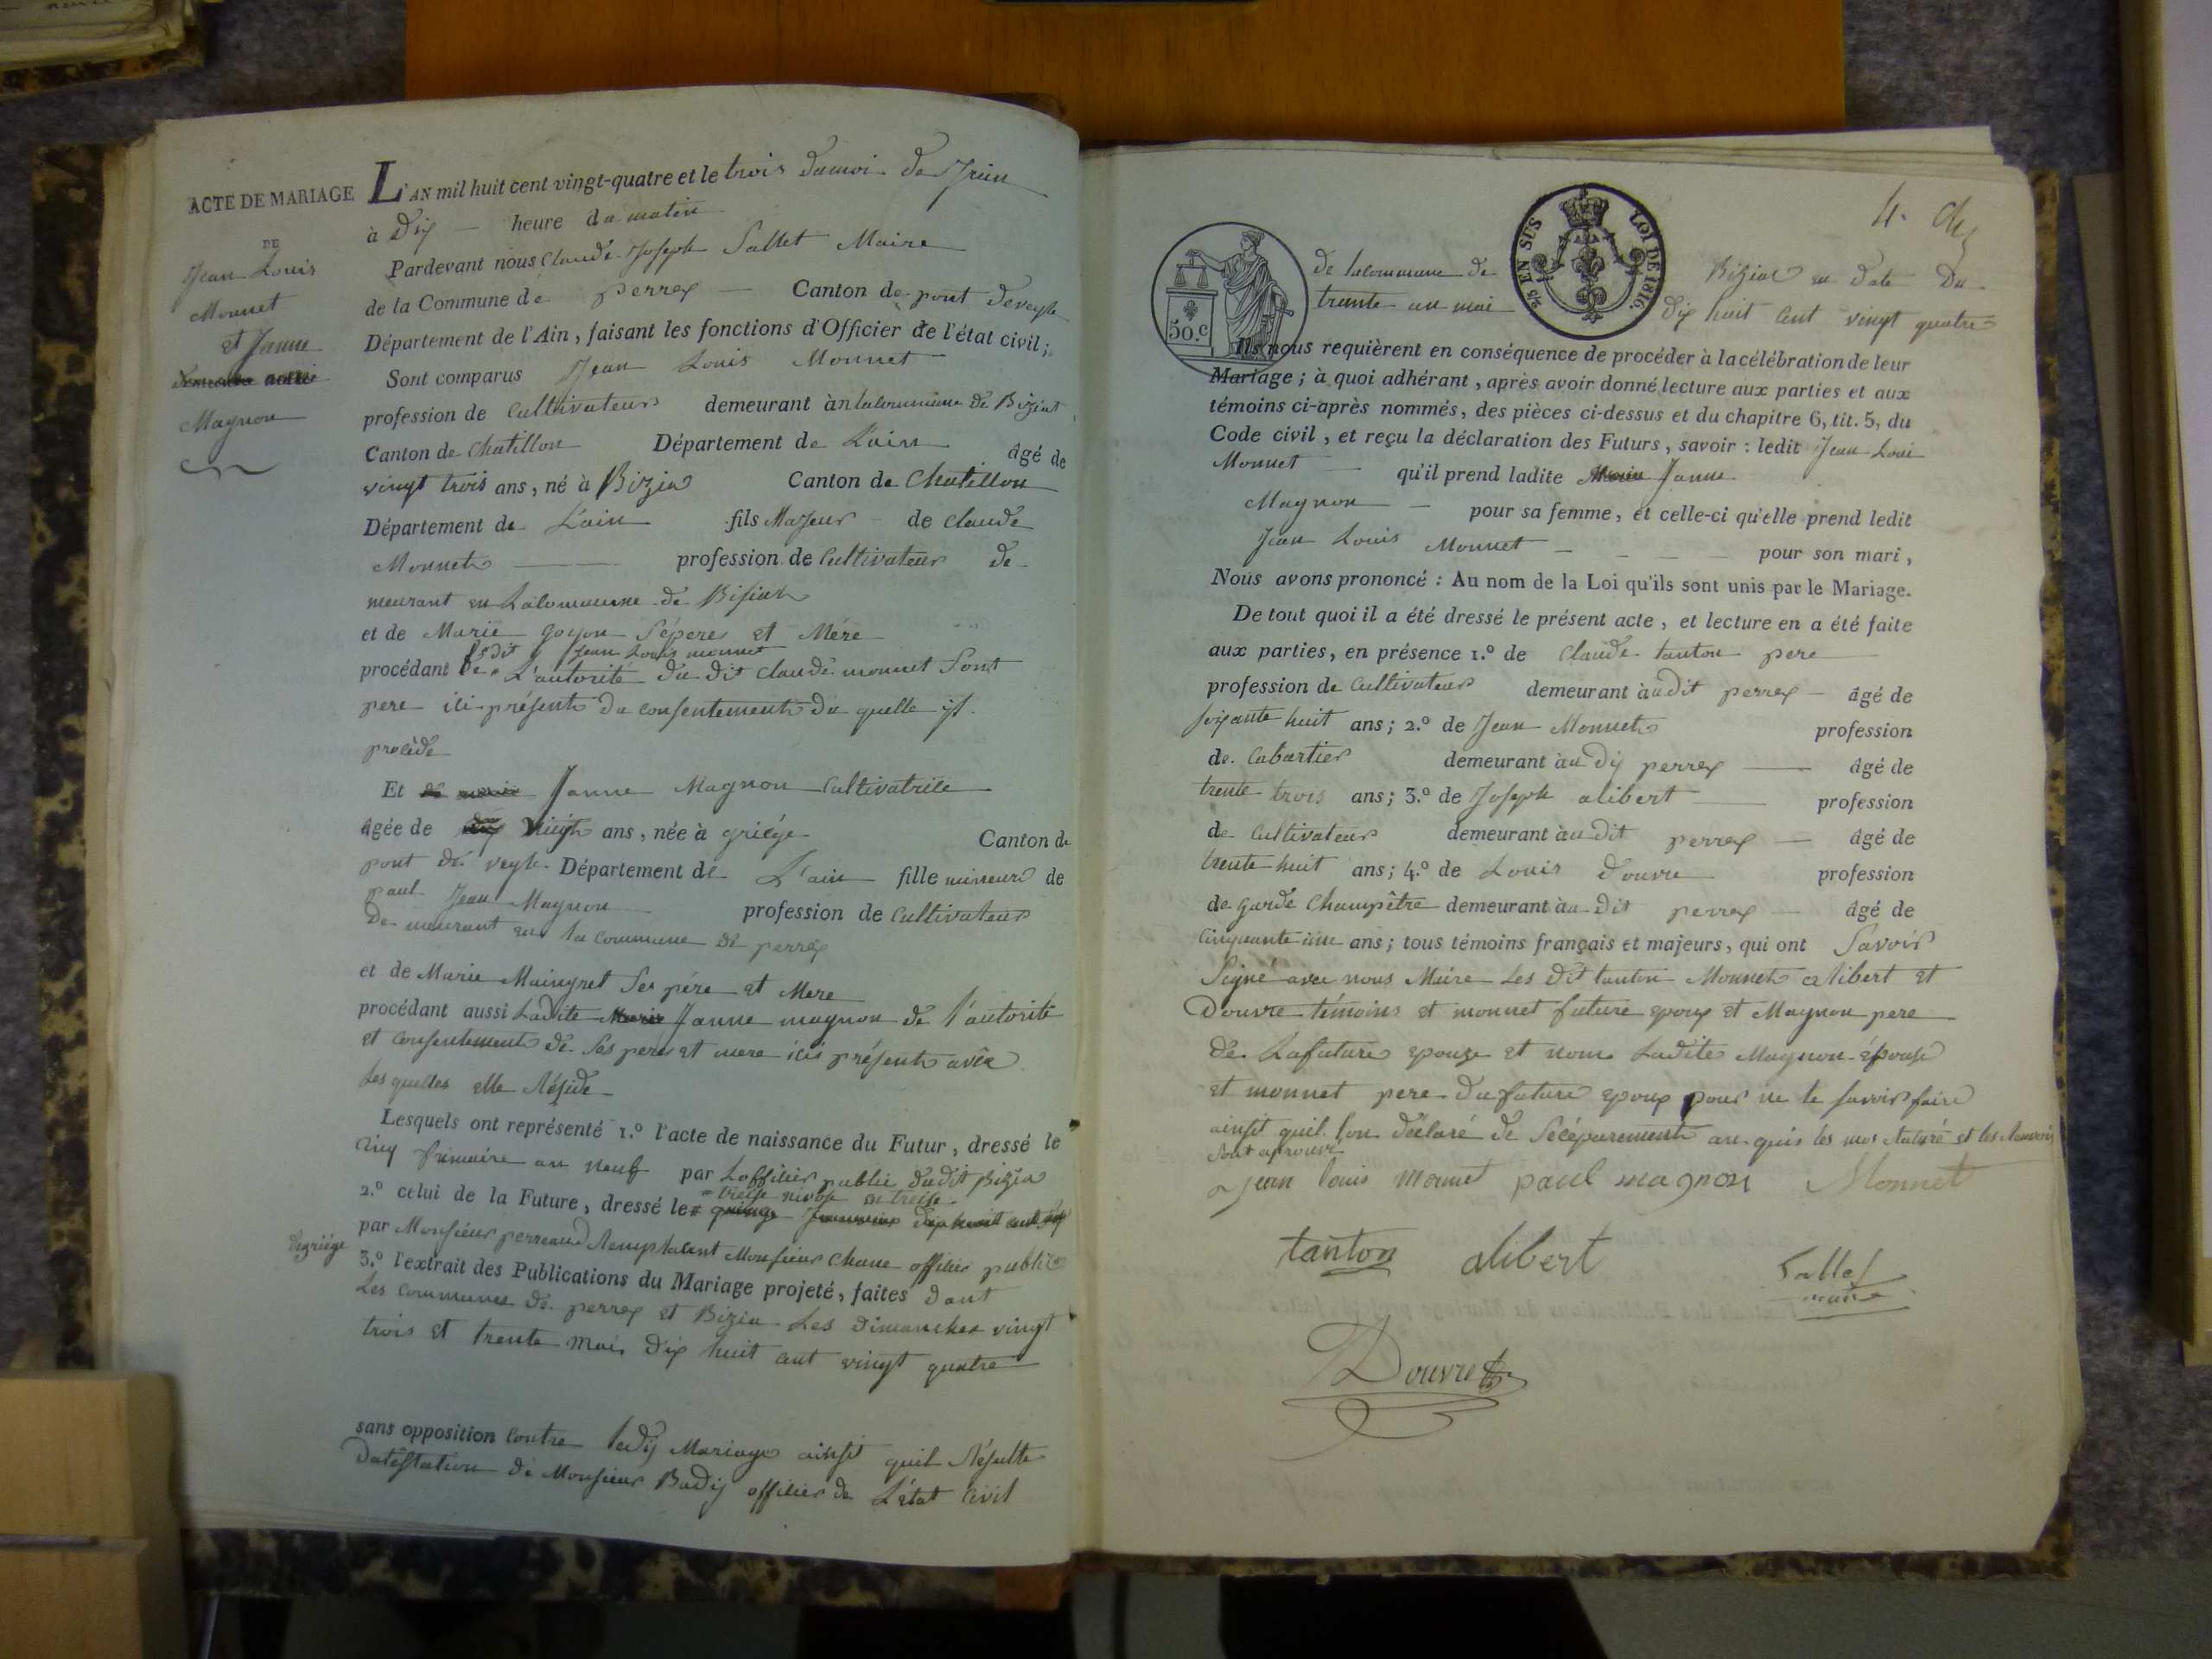 ACTE DE MARIAGE
DE
Jean Louis
Monnet
et Janne
Magnon
L'AN mil huit cent vingt-quatre et le trois du moi de Juin
à Dix — heure du matin
Pardevant nous Claude Joseph Sallet Maire
de la Commune de perrex — Canton de pont deveyle
Département de l'Ain, faisant les fonctions d'Officier de l'état civil;
Sont comparus Jean Louis Monnet
profession de Cultivateur demeurant àn lacommune de Biziat
Canton de Chatillon Département de L'ain âgé de
vingt trois ans, né à Bizia Canton de Chatillon
Département de L'ain fils Majeur de claude
Monnet profession de Cultivateur de
meurant en Lacommune de Bisiat
et de Marie goyon Sépere et Mére
ledit Jean Louis monnet
procédant De L'autorité du dit claude monnet Sont
pere ici présent du consentement du quelle il
procède
Et Janne Magnon Cultivatrice
âgée de Vingt ans, née à griége Canton de
pont de veyle Département de L'ain fille mineure de
paul Jean Magnon profession de Cultivateur
De meurant en la commune de perrex
et de Marie Maingret Ses père et Mere
procédant aussi Ladite Marie Janne magnon de l'autorité
et consentement de Ses pere et mere icis présent avec
Lesquelles elle Réside
Lesquels ont représenté 1.º l'acte de naissance du Futur, dressé le
cinq frimaire an neuf par Lofficier public dudit Bizia
treise nivose en treise
2.º celui de la Future, dressé le
par Monsieur perreaud Remplacent Monsieur Chane officier public
degriége
3.º l'extrait des Publications du Mariage projeté, faites dant
Les communes de perrex et Bizia Les Dimanches vingt
trois et trente mai Dix huit cent vingt quatre
sans opposition contre ledis Mariage ainsit quil Résulte
Datestation de Monsieur Badij officier de L'état civil
4.
50.c
2/5 EN SUS LOI DE 1816.
de lacommune de Biziat en date Du
trente un mai Dix huit cent vingt quatre
Ils nous requièrent en conséquence de procéder à la célébration de leur
Mariage; à quoi adhérant, après avoir donné lecture aux parties et aux
témoins ci-après nommés, des pièces ci-dessus et du chapitre 6, tit. 5, du
Code civil, et reçu la déclaration des Futurs, savoir: ledit Jean Loui
Monnet — qu'il prend ladite Marie Janne
Magnon — pour sa femme, et celle-ci qu'elle prend ledit
Jean Louis Monnet — pour son mari,
Nous avons prononcé: Au nom de la Loi qu'ils sont unis par le Mariage.
De tout quoi il a été dressé le présent acte, et lecture en a été faite
aux parties, en présence 1.º de Claude tanton pere
profession de Cultivateur demeurant àudit perrex — âgé de
soixante huit ans; 2.º de Jean Monnet profession
de Cabartier demeurant àu Dij perrex — âgé de
trente trois ans; 3.º de Joseph alibert profession
de Cultivateur demeurant àu dit perrex — âgé de
trente huit ans; 4.º de Louis Douvre profession
de garde Champêtre demeurant àu Dit perrex — âgé de
Cinquante une ans; tous témoins français et majeurs, qui ont Savoir
Signé avec nous Maire Les Dit tanton Monnet alibert et
Douvre témoins et monnet future epoux et Magnon pere
De Lafuture epouze et nom Ladite Magnon épouse
et monnet pere du future epoux pour ne le savoir faire
ainsit quil lon déclaré de Sécéparement
Sont aprouvé
jean louis monnet paul magnon Monnet
tanton alibert Sallet
maire
Douvre